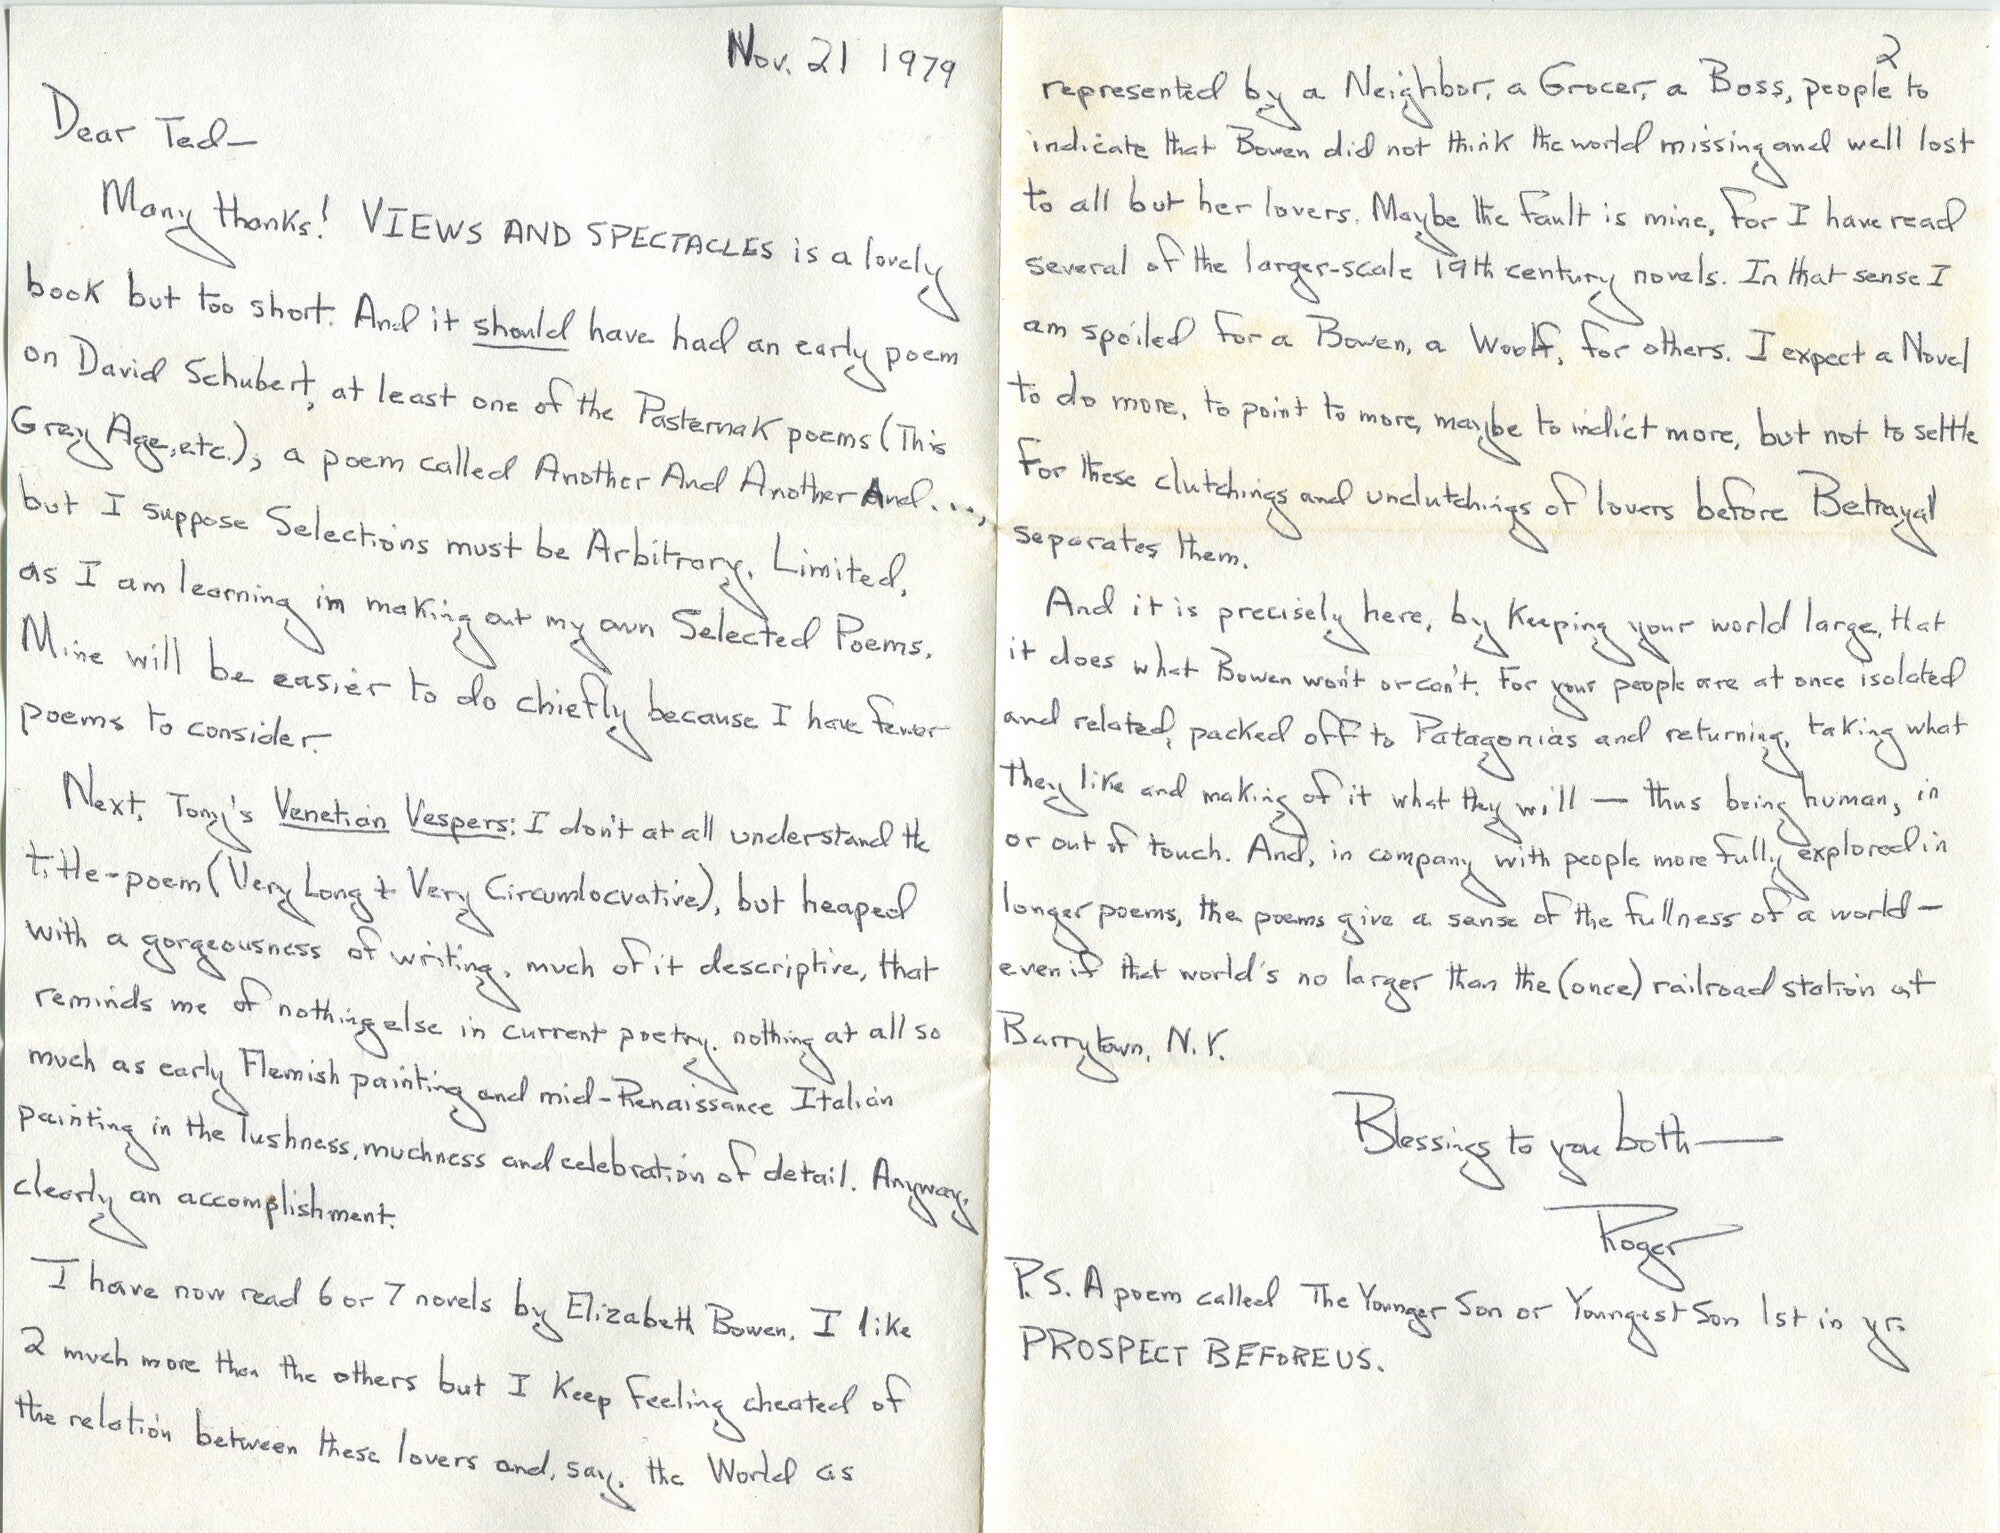 Nov. 21 1979
Dear Ted—
Many thanks! VIEWS AND SPECTACLES is a lovely
book but too short. And it should have had an early poem
on David Schubert, at least one of the Pasternak poems (This
Gray Age, etc.), a poem called Another And Another And...,
but I suppose Selections must be Arbitrary, Limited,
as I am learning in making out my own Selected Poems.
Mine will be easier to do chiefly because I have fewer
poems to consider.
Next, Tony's Venetian Vespers: I don't at all understand the
title-poem (Very Long & Very Circumlocvative), but heaped
with a gorgeousness of writing, much of it descriptive, that
reminds me of nothing else in current poetry, nothing at all so
much as early Flemish painting and mid-Renaissance Italian
painting in the lushness, muchness and celebration of detail. Anyway,
clearly an accomplishment.
I have now read 6 or 7 novels by Elizabeth Bowen. I like
2 much more than the others but I keep feeling cheated of
the relation between these lovers and, say, the World as
2
represented by a Neighbor, a Grocer, a Boss, people to
indicate that Bowen did not think the world missing and well lost
to all but her lovers. Maybe the fault is mine, for I have read
several of the larger-scale 19th century novels. In that sense I
am spoiled for a Bowen, a Woolf, for others. I expect a Novel
to do more, to point to more, maybe to indict more, but not to settle
for these clutchings and unclutchings of lovers before Betrayal
separates them.
And it is precisely here, by keeping your world large, that
it does what Bowen won't or can't. For your people are at once isolated
and related, packed off to Patagonias and returning, taking what
they like and making of it what they will — thus being human, in
or out of touch. And, in company with people more fully explored in
longer poems, the poems give a sense of the fullness of a world—
even if that world's no larger than the (once) railroad station at
Barrytown, N.Y.
Blessings to you both—
Roger
P.S. A poem called The Younger Son or Youngest Son 1st in yr.
PROSPECT BEFORE US.